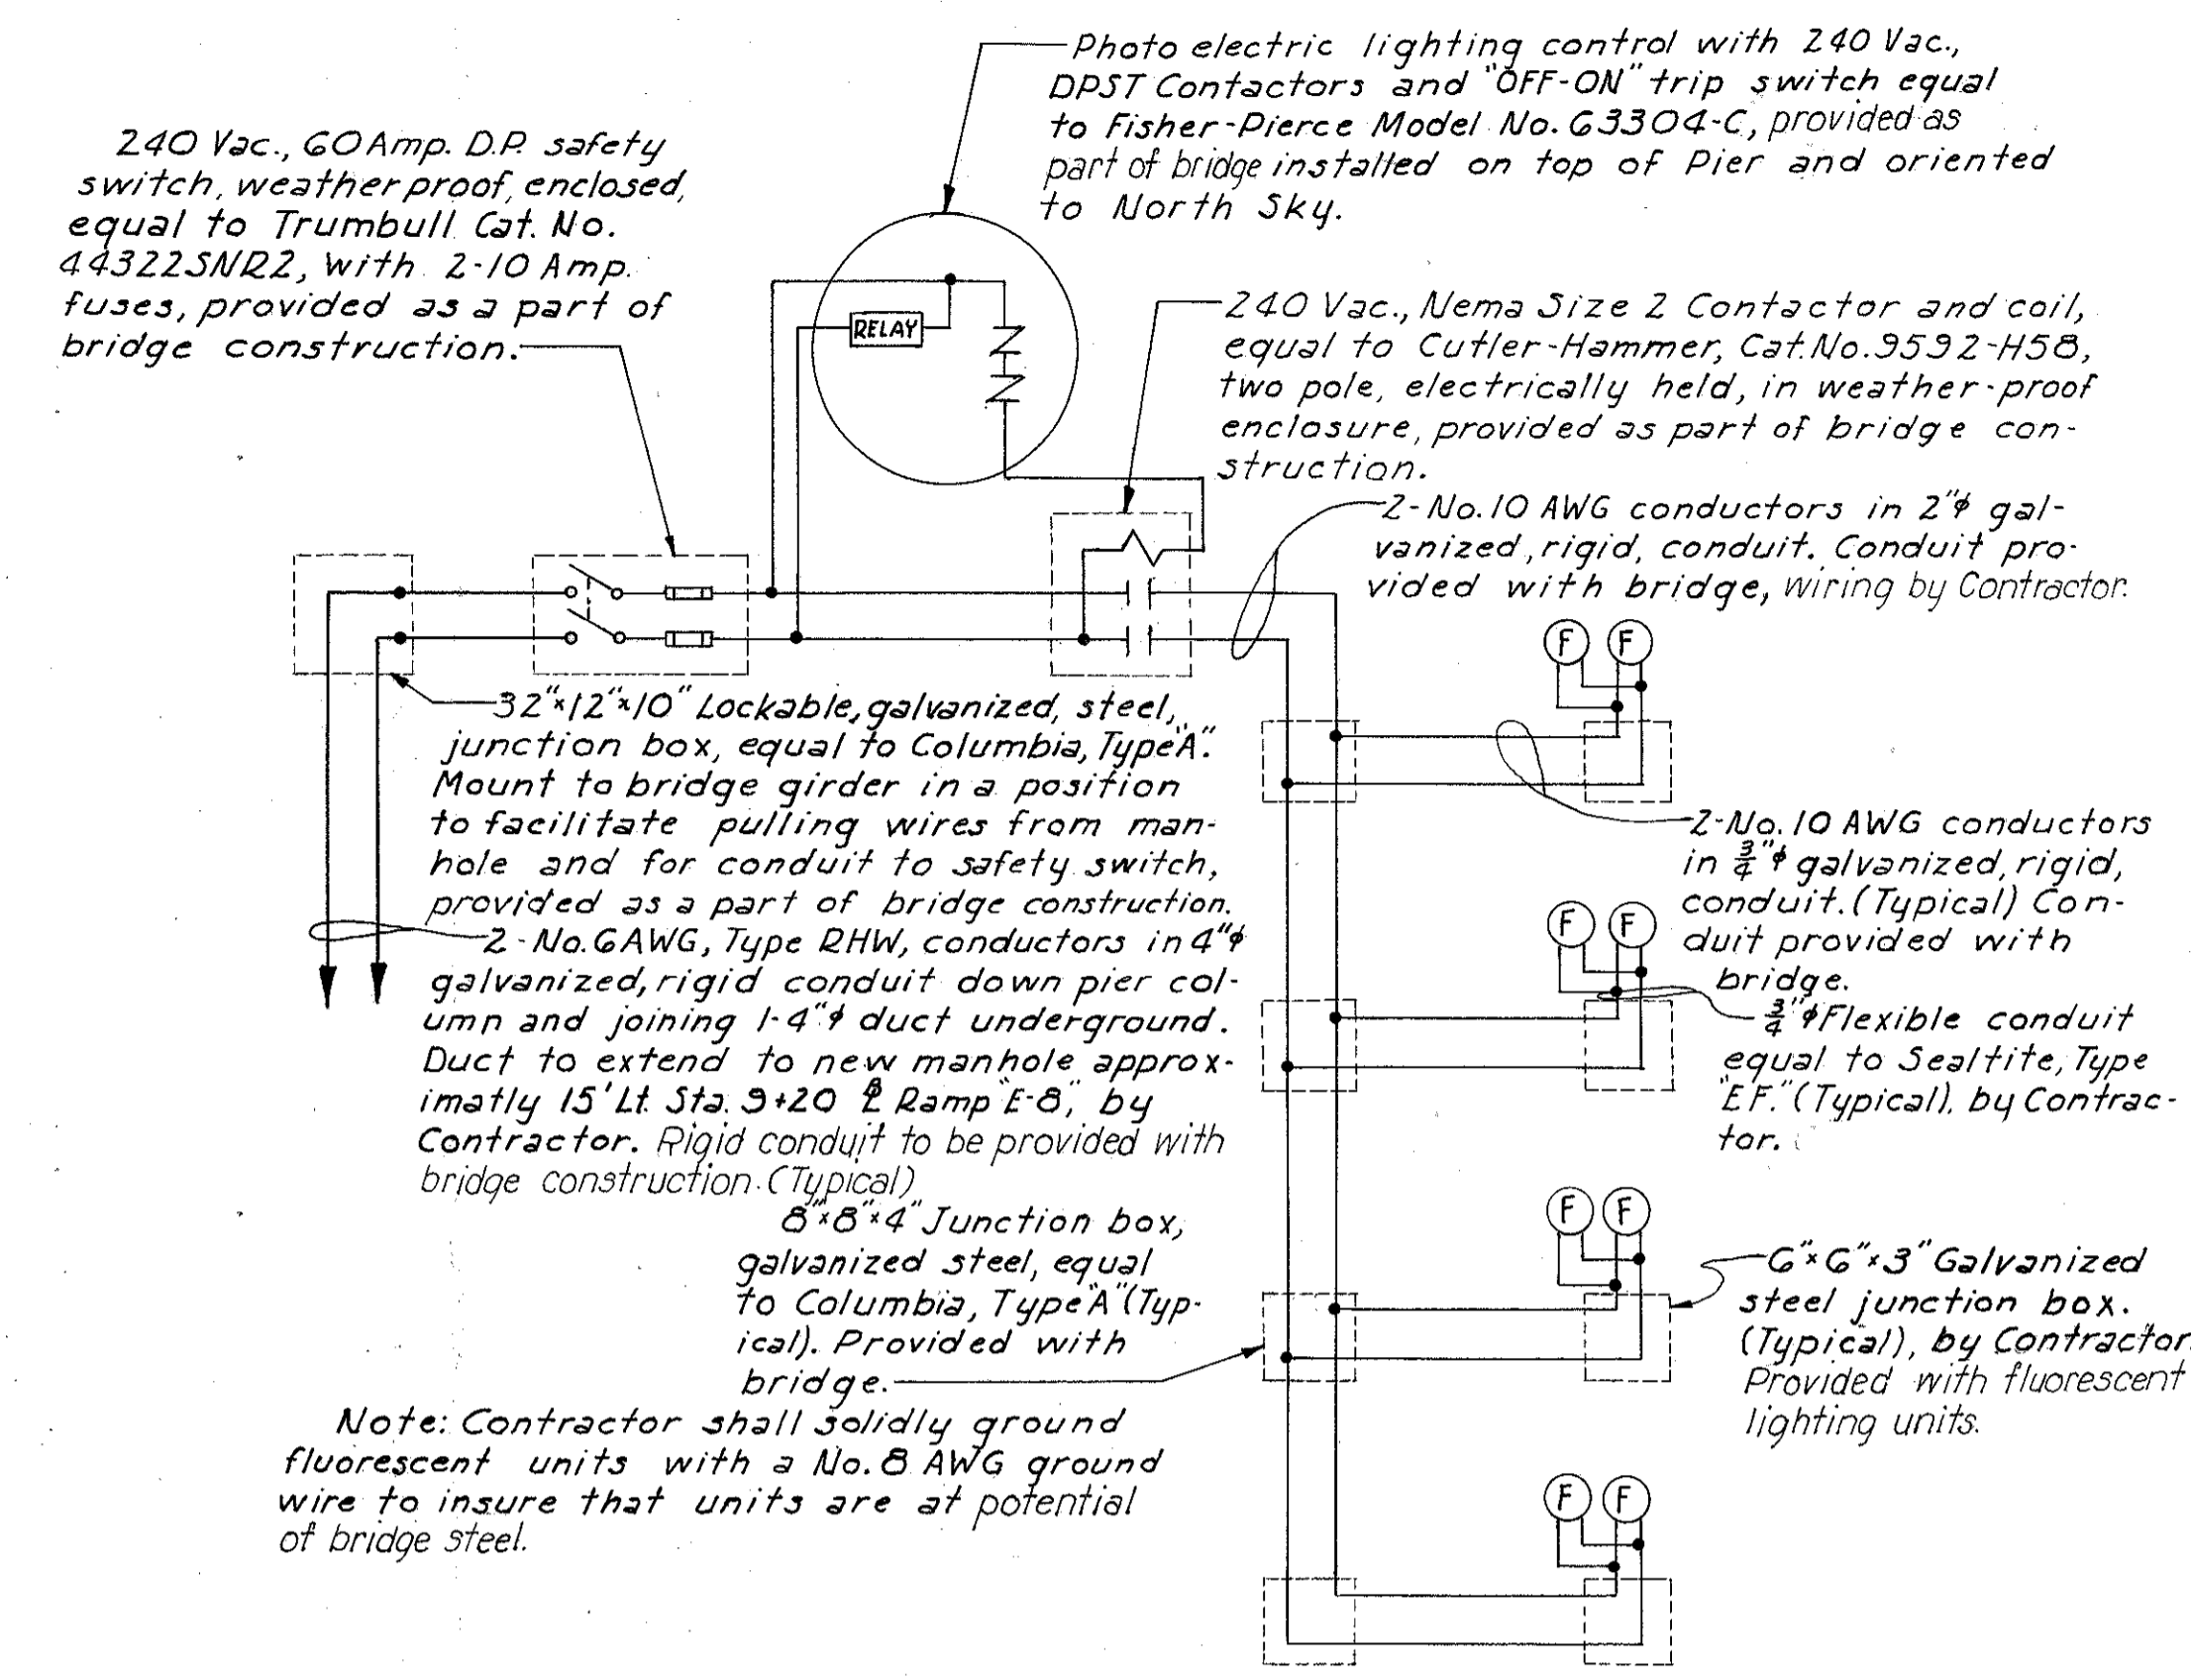 Photo electric lighting control with 240 Vac.,
DPST Contactors and "OFF-ON" trip switch equal
to Fisher-Pierce Model No. 63304-C, provided as
part of bridge installed on top of Pier and oriented
to North Sky.
240 Vac., 60 Amp. D.P. safety
switch, weather proof, enclosed,
equal to Trumbull Cat. No.
44322SNR2, with 2-10 Amp.
fuses, provided as a part of
bridge construction.
RELAY
240 Vac., Nema Size 2 Contactor and coil,
equal to Cutler-Hammer, Cat. No. 9592-H58,
two pole, electrically held, in weather-proof
enclosure, provided as part of bridge con-
struction.
2-No. 10 AWG conductors in 2"φ gal-
vanized, rigid, conduit. Conduit pro-
vided with bridge, wiring by Contractor.
F F
32"x12"x10" Lockable, galvanized, steel,
junction box, equal to Columbia, Type "A".
Mount to bridge girder in a position
to facilitate pulling wires from man-
hole and for conduit to safety switch,
provided as a part of bridge construction.
2-No. 6 AWG, Type RHW, conductors in 4"φ
galvanized, rigid conduit down pier col-
umn and joining 1-4"φ duct underground.
Duct to extend to new manhole approx-
imatly 15' Lt. Sta. 9+20 ⅊ Ramp "E-8", by
Contractor. Rigid conduit to be provided with
bridge construction. (Typical)
2-No. 10 AWG conductors
in 3/4"φ galvanized, rigid,
conduit. (Typical) Con-
duit provided with
bridge.
F F
3/4"φ Flexible conduit
equal to Sealtite, Type
"E.F." (Typical), by Contrac-
tor.
8"x8"x4" Junction box,
galvanized steel, equal
to Columbia, Type "A" (Typ-
ical). Provided with
bridge.
F F
6"x6"x3" Galvanized
steel junction box.
(Typical), by Contractor.
Provided with fluorescent
lighting units.
Note: Contractor shall solidly ground
fluorescent units with a No. 8 AWG ground
wire to insure that units are at potential
of bridge steel.
F F